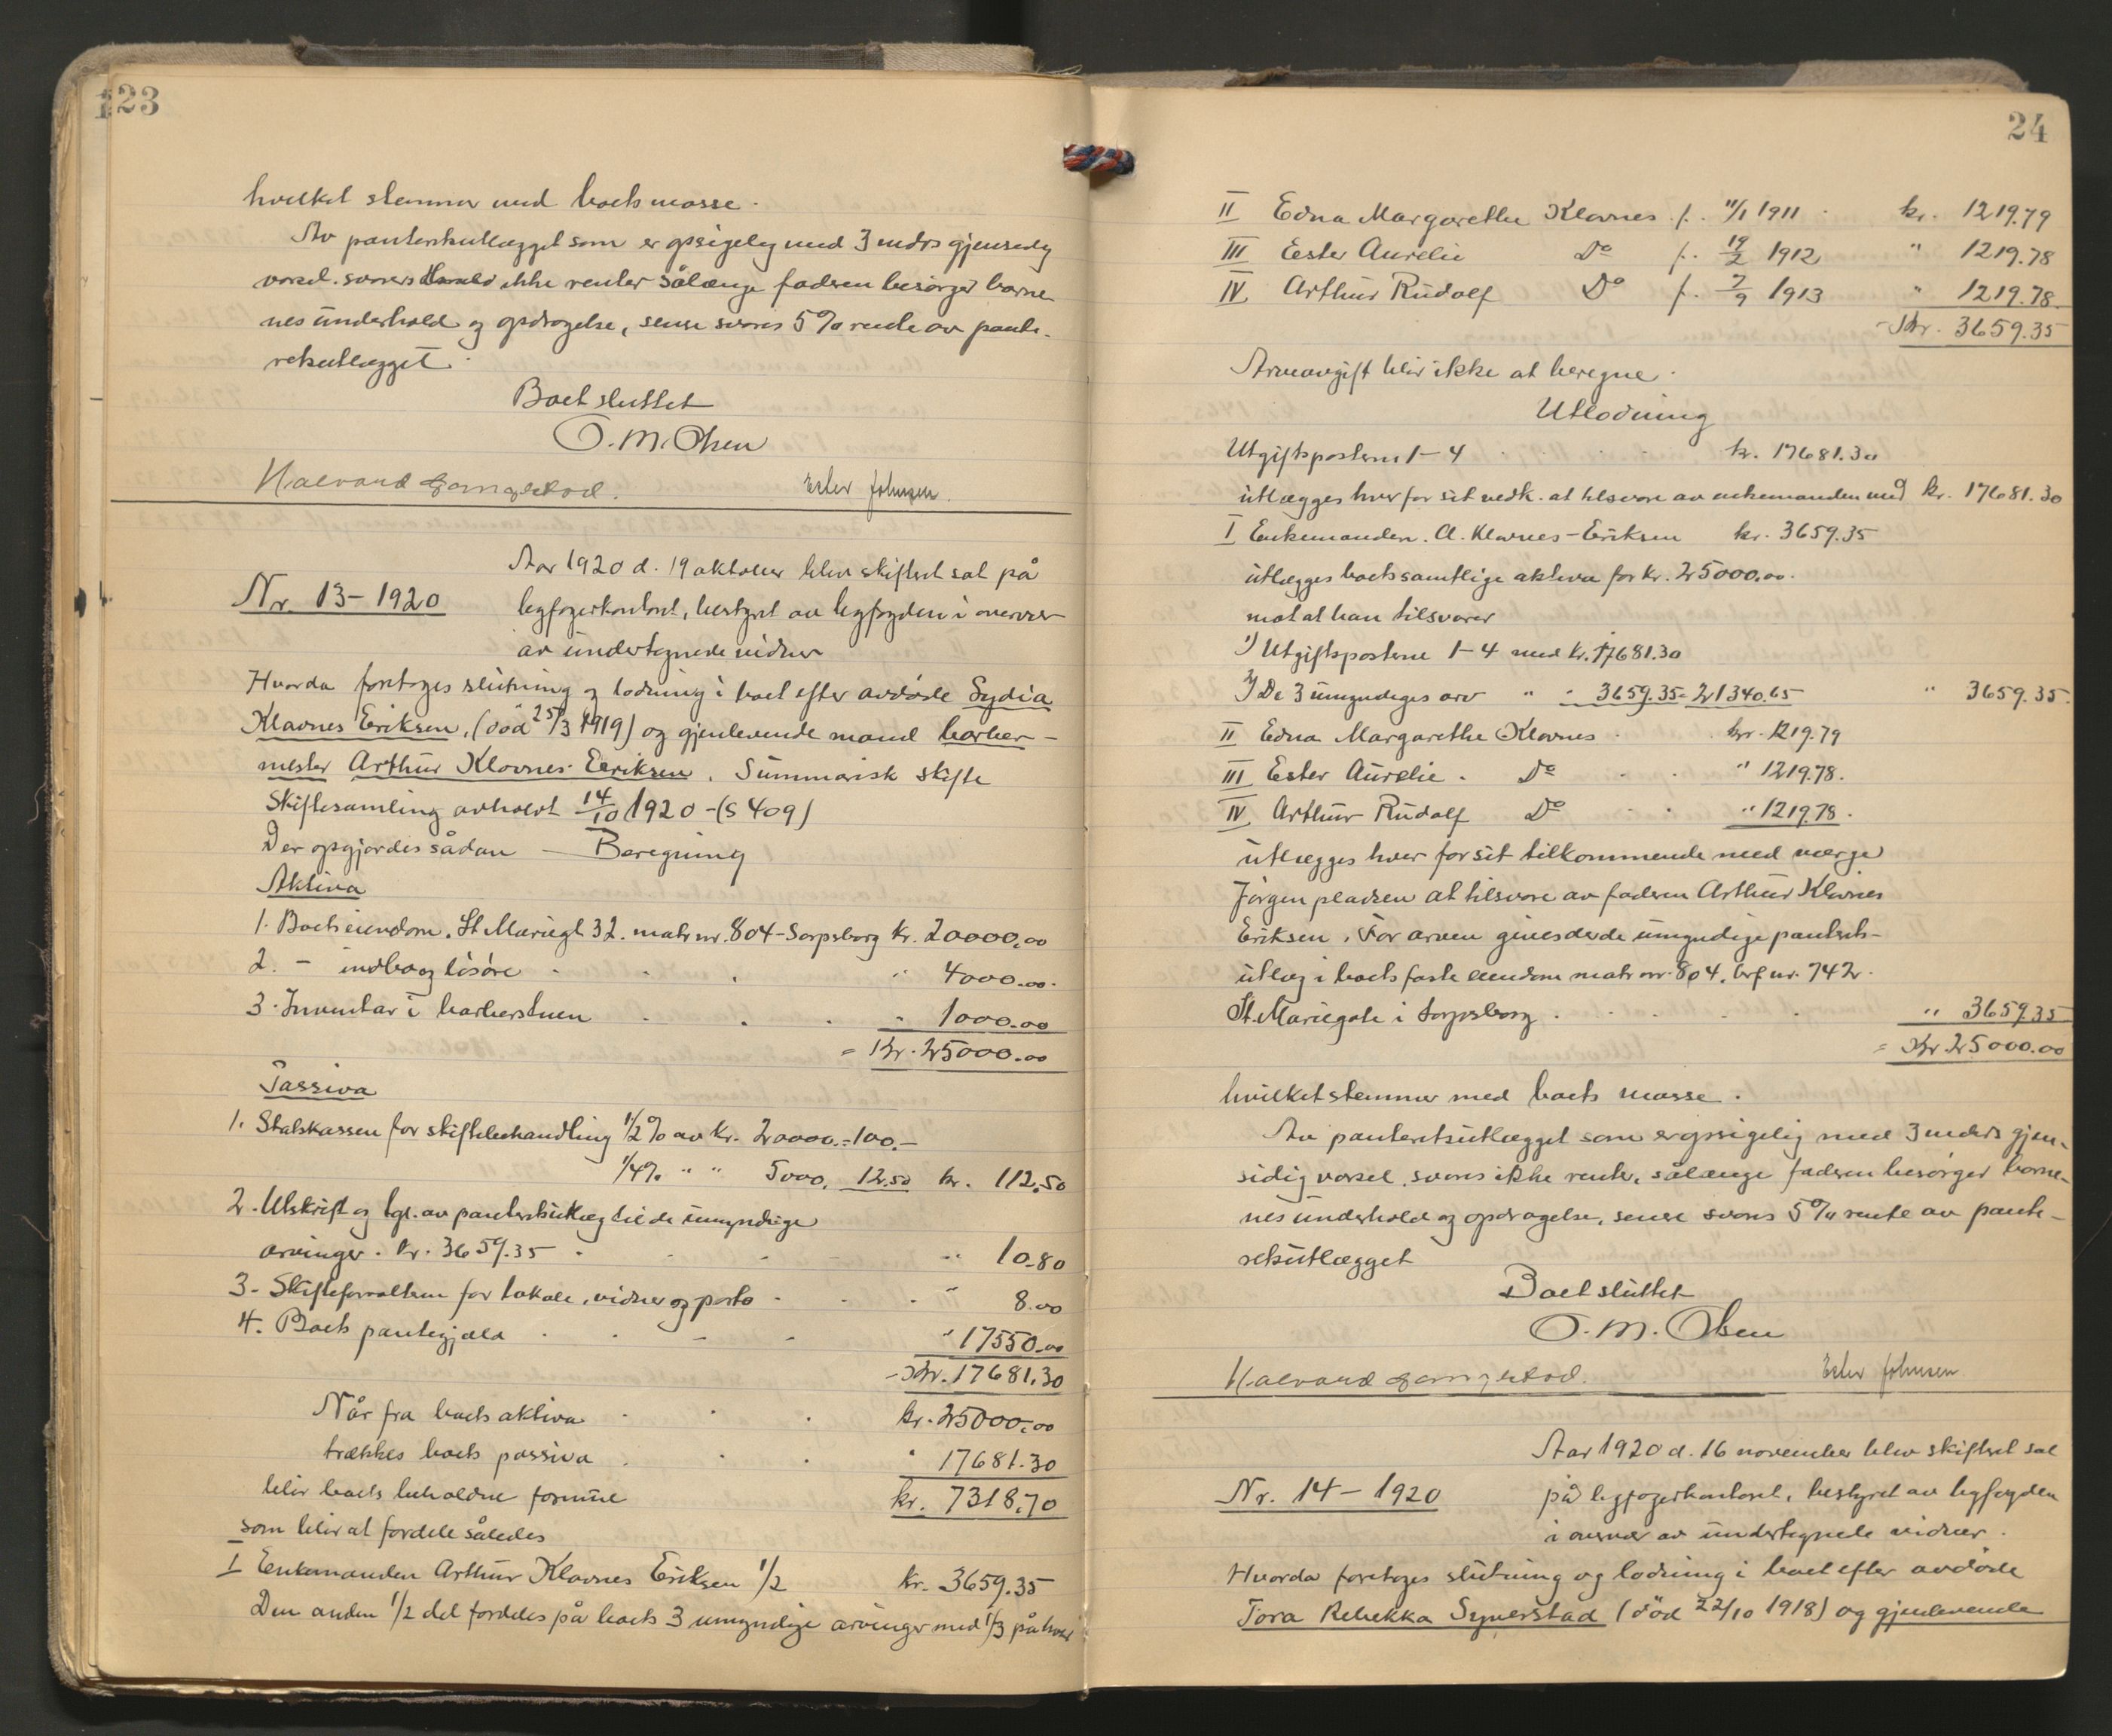 123
hvilket stemmer med boets masse.
Av panteretsutlægget som er opsigelig med 3 mdrs gjensedig
varsel. svares ikke renter sålænge faderen besørger barne
nes underhold og opdragelse, senere svares 5% rente av pante-
retsutlægget.
Boet sluttet
O. M. Olsen
Halvard
Ester Johnsen.
Aar 1920 d. 19 oktober blev skifteret sat på
Nr 13-1920
byfogetkontoret, bestyret av byfogden i overvær
av undertegnede vidner
Hvorda foretoges slutning og lodning i boet efter avdøde Lydia
Klavnes Eriksen, (død 25/3 1919) og gjenlevende mand barber-
mester Arthur Klavnes Eriksen. Summarisk skifte
Skiftesamling avholdt 14/10 1920 - (S 409)
Der opgjordes sådan — Beregning
Aktiva
1. Boets eiendom. St Mariegt 32. matr nr. 804 - Sarpsborg kr. 20000,00
2. - indbo og løsøre . . . " 4000.00.
3. Inventar i barberstuen . . . " 1000.00
= Kr. 25000.00
Passiva
1. Statskassen for skiftebehandling 1/2% av kr. 20000.=100.-
1/4% " " 5000, 12.50 kr. 112.50
2. Utskrift og tgl. av panteretsutlæg til de umyndige
arvinger. kr. 3659.35 . . . " 10.80
3. Skifteforvalteren for lokale, vidner og porto . . . " 8.00
4. Boets pantegjæld . . . " 17550.00
= Kr. 17681.30
Når fra boets aktiva . . . kr. 25000.00
trækkes boets passiva . . . " 17681.30
blir boets beholdne formue kr. 7318.70
som blir at fordele således
I Enkemanden Arthur Klavnes Eriksen 1/2 kr. 3659.35
Den anden 1/2 del fordeles på boets 3 umyndige arvinger med 1/3 på hver
24
II Edna Margarethe Klavnes f. 11/1 1911 . kr. 1219.79
III Ester Aurelie Do f. 19/2 1912 " 1219.78
IV Arthur Rudolf Do f. 7/9 1913 " 1219.78.
= Kr. 3659.35
Arveavgift blir ikke at beregne.
Utlodning
Utgiftsposterne 1-4 . . . kr. 17681.30
utlægges hver for sit vedk. at tilsvare av enkemanden med kr. 17681.30
I Enkemanden. A. Klavnes-Eriksen kr. 3659.35
utlægges boets samtlige aktiva for kr. 25000.00.
mot at han tilsvarer
1) Utgiftsposterne 1-4 med kr. 17681.30
2) De 3 umyndiges arv " " 3659.35 = 21340.65 " 3659.35.
II Edna Margarethe Klavnes . kr. 1219.79
III Ester Aurelie . Do . . " 1219.78.
IV Arthur Rudolf Do . . " 1219.78.
utlægges hver for sit tilkommende med værge
Jørgen pladsen at tilsvare av faderen Arthur Klavnes
Eriksen. For arven gives de de umyndige panterets-
utlæg i boets faste eiendom matr nr. 804. brf nr. 742.
St. Mariegate i Sarpsborg . . . " 3659.35
= Kr. 25000.00
hvilket stemmer med boets masse.
Av panteretsutlægget som er opsigelig med 3 mdrs gjen-
sidig varsel. svares ikke renter, sålænge faderen besørger barne-
nes underhold og opdragelse, senere svares 5% rente av pante-
retsutlægget
Boet sluttet
O. M. Olsen
Halvard
Ester Johnsen
Aar 1920 d. 16 november blev skifteret sat
Nr. 14-1920
på byfogetkontoret, bestyret av byfogden
i overvær av undertegnede vidner.
Hvorda foretoges slutning og lodning i boet efter avdøde
Tora Rebekka Synerstad (død 22/10 1918) og gjenlevende